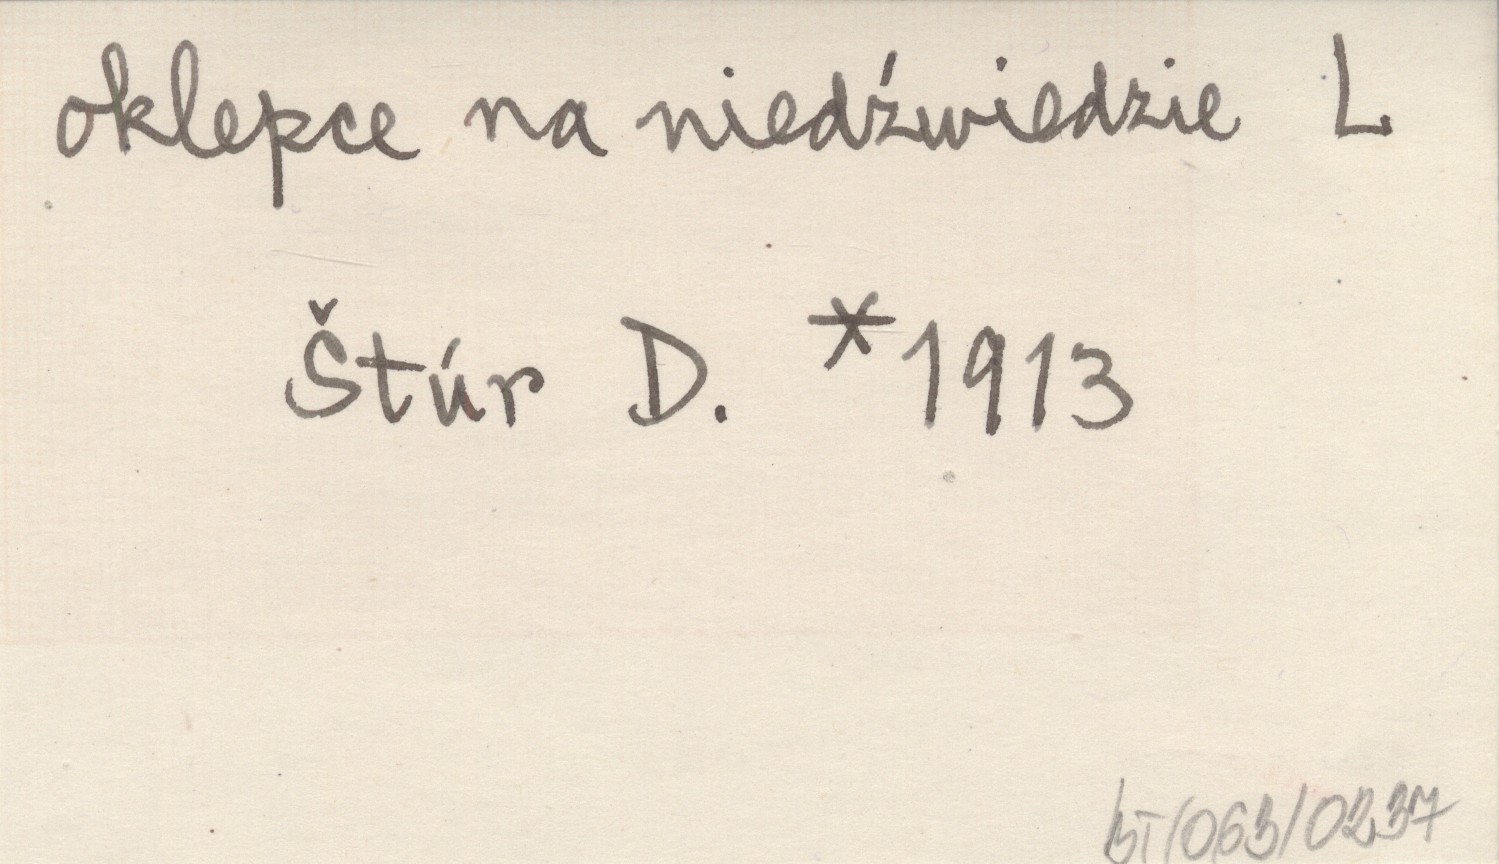 oklepce na niedźwiedzie L
Štúr D. *1913
BT/063/0237